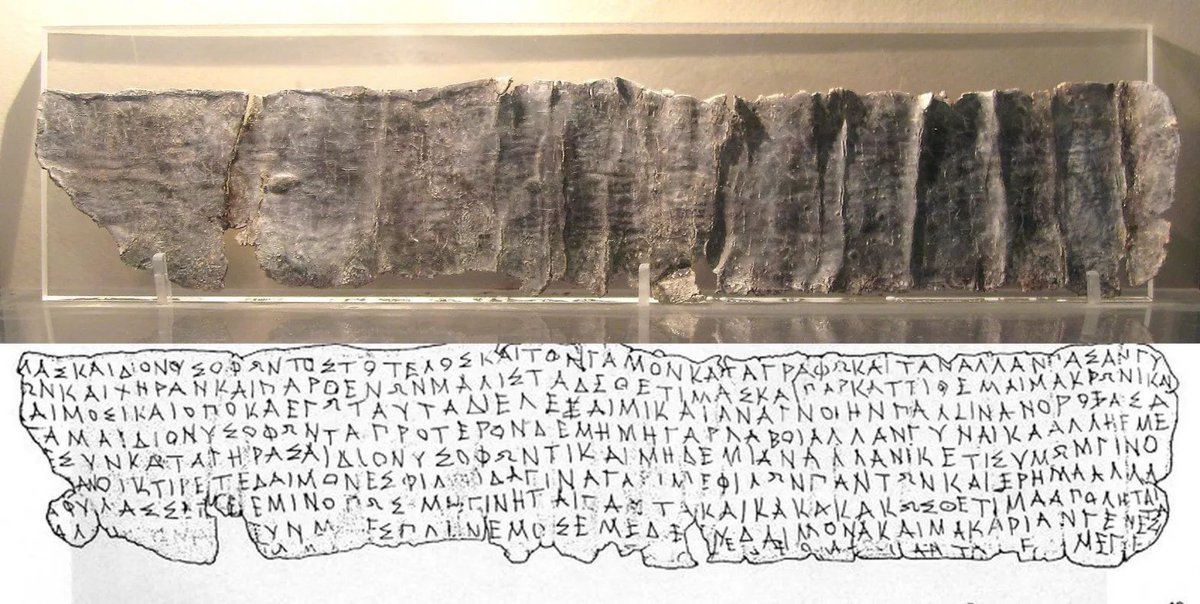 ΑΣΚΑΙΔΙΟΝΥΣΟΦΩΝΤΟΣΤΟΤΕΛΟΣΚΑΙΤΟΝΓΑΜΟΝΚΑΤΑΓΡΑΦΩΚΑΙΤΑΝΑΛΛΑΝΠΑΣΑΝΓΥ
ΩΝΚΑΙΧΗΡΑΝΚΑΙΠΑΡΘΕΝΩΝΜΑΛΙΣΤΑΔΕΘΕΤΙΜΑΣΚΑΙΠΑΡΚΑΤΤΙΘΕΜΑΙΜΑΚΡΩΝΙΚΑΙ
ΑΙΜΟΣΙΚΑΙΟΠΟΚΑΕΓΩΤΑΥΤΑΔΙΕΛΕΞΑΙΜΙΚΑΙΑΝΑΓΝΟΙΗΝΠΑΛΛΙΝΑΝΟΡΟΞΑΣΑ
ΓΑΜΑΙΔΙΟΝΥΣΟΦΩΝΤΑΠΡΟΤΕΡΟΝΔΕΜΗΜΗΓΑΡΛΑΒΟΙΑΛΛΑΝΓΥΝΑΙΚΑΑΛΛΗΕΜΕ
ΕΣΥΝΚΑΤΑΓΗΡΑΣΑΙΔΙΟΝΥΣΟΦΩΝΤΙΚΑΙΜΗΔΕΜΙΑΝΑΛΛΑΝΙΚΕΤΙΣΥΜΩΜΓΙΝΟ
ΑΝΟΙΚΤΙΡΕΤΕΔΑΙΜΟΝΕΣΦΙΛ ΙΔΑΓΙΝΑΓΑΡΙΜΕΦΙΛΩΝΠΑΝΤΩΝΚΑΙΕΡΗΜΑΑΛΛΑ
ΥΛΑΣΣΕΤΕΕΜΙΝΟΠΩΣΜΗΓΙΝΗΤΑΙΤΑ ΤΑΚΑΙΚΑΚΑΚΑΚΩΣΘΕΤΙΜΑΑΠΟΛΗΤΑΙ
ΑΛ ΥΝΜ ΕΣΠΛΗΝΕΜΟΣΕΜΕΔΕ ΥΕΔΑΙΜΟΝΑΚΑΙΜΑΚΑΡΙΑΝΓΕΝΕΣ